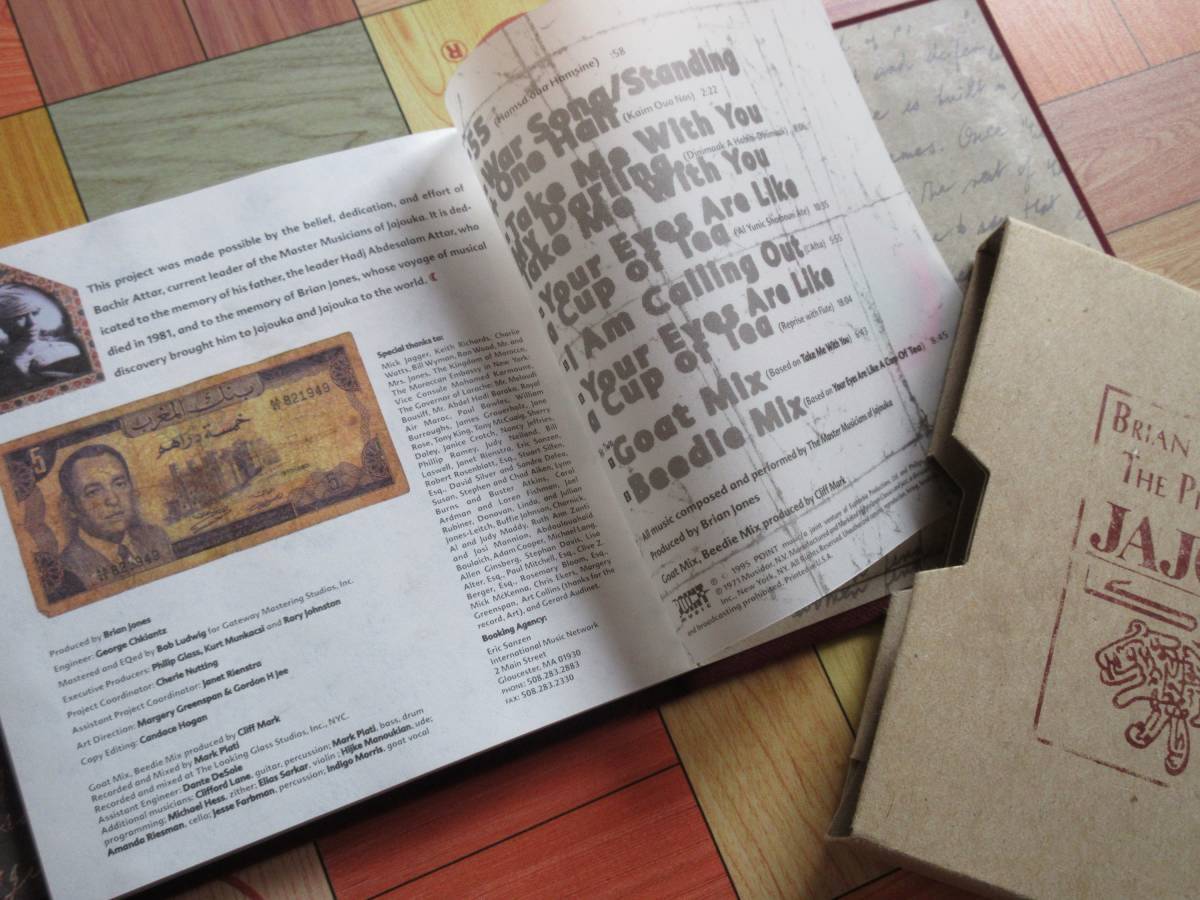 This project was made possible by the belief, dedication, and effort of
Bachir Attar, current leader of the Master Musicians of Jajouka. It is ded-
icated to the memory of his father, the leader Hadj Abdesalam Attar, who
died in 1981, and to the memory of Brian Jones, whose voyage of musical
discovery brought him to Jajouka and Jajouka to the world.
بنك المغرب
821949
خمسة دراهم
5
5
821949
Produced by Brian Jones
Engineer: George Chkiantz
Mastered and EQed by Bob Ludwig for Gateway Mastering Studios, Inc.
Executive Producers: Philip Glass, Kurt Munkacsi and Rory Johnston
Project Coordinator: Cherie Nutting
Assistant Project Coordinator: Janet Rienstra
Art Direction: Margery Greenspan & Gordon H Jee
Copy Editing: Candace Hogan
Goat Mix, Beedie Mix produced by Cliff Mark
Recorded and Mixed by Mark Plati
Recorded and mixed at The Looking Glass Studios, Inc., NYC.
Assistant Engineer: Dante DeSole
Additional musicians: Clifford Lane, guitar, percussion; Mark Plati, bass, drum
programming; Michael Hess, zither; Elias Sarkar, violin; Hijke Manoukian, ude;
Amanda Riesman, cello; Jesse Farbman, percussion; Indigo Morris, goat vocal
Special thanks to:
Mick Jagger, Keith Richards, Charlie
Watts, Bill Wyman, Ron Wood, Mr. and
Mrs. Jones, The Kingdom of Morocco,
The Moroccan Embassy in New York,
Vice Consule Mohamed Karmoune,
The Governor of Larache, Mr. Mehoub
Bousiff, Mr. Abdel Hadi Baraka, Royal
Air Maroc, Paul Bowles, William
Burroughs, James Grauerholz, Jane
Rose, Tony King, Tony McCuaig, Sherry
Daley, Janice Crotch, Nancy Jeffries,
Phillip Ramey, Judy Neiland, Bill
Laswell, Janet Rienstra, Eric Sanzen,
Robert Rosenblatt, Esq., Stuart Silfen,
Esq., David Silver, and Sandra Dafea,
Susan, Stephen and Chad Aiken, Lynn
Burns and Buster Atkins, Carol
Ardman and Loren Fishman, Joel
Rubiner, Donovan, Linda and Jullian
Jones-Leitch, Buffie Johnson, Charnick,
Al and Judy Maddy, Ruth Ann Zanti
and Josi Mannion, Abdoulouahaid
Boulaich, Adam Cooper, Michael Lang,
Allen Ginsberg, Stephen Davis, Lisa
Alter, Esq., Paul Mitchell, Esq., Clive Z.
Berger, Esq., Rosemary Bloom, Esq.,
Mick McKenna, Chris Ekers, Margery
Greenspan, Art Collins (thanks for the
record, Art), and Gerard Audinet.
Booking Agency:
Eric Sanzen
International Music Network
2 Main Street
Gloucester, MA 01930
PHONE: 508.283.2883
FAX: 508.283.2330
®
55 (Hamsa oua Hamsine) :58
War Song/Standing
One Half (Kaim Oua Nos) 2:22
Take Me With You
My Darling
Take Me With You
Your Eyes Are Like
a Cup of Tea (Al Yunic Sharbouni Ate) 10:35
I Am Calling Out (L'Afta) 5:55
Your Eyes Are Like
a Cup of Tea (Reprise with Flute) 18:04
Goat Mix (Based on Take Me With You) 6:43
Beedie Mix (Based on Your Eyes Are Like A Cup Of Tea) 8:45
All music composed and performed by The Master Musicians of Jajouka
Produced by Brian Jones
Goat Mix, Beedie Mix produced by Cliff Mark
POINT MUSIC
and broadcasting prohibited. Printed in U.S.A.
BRIAN
THE P
JAJO